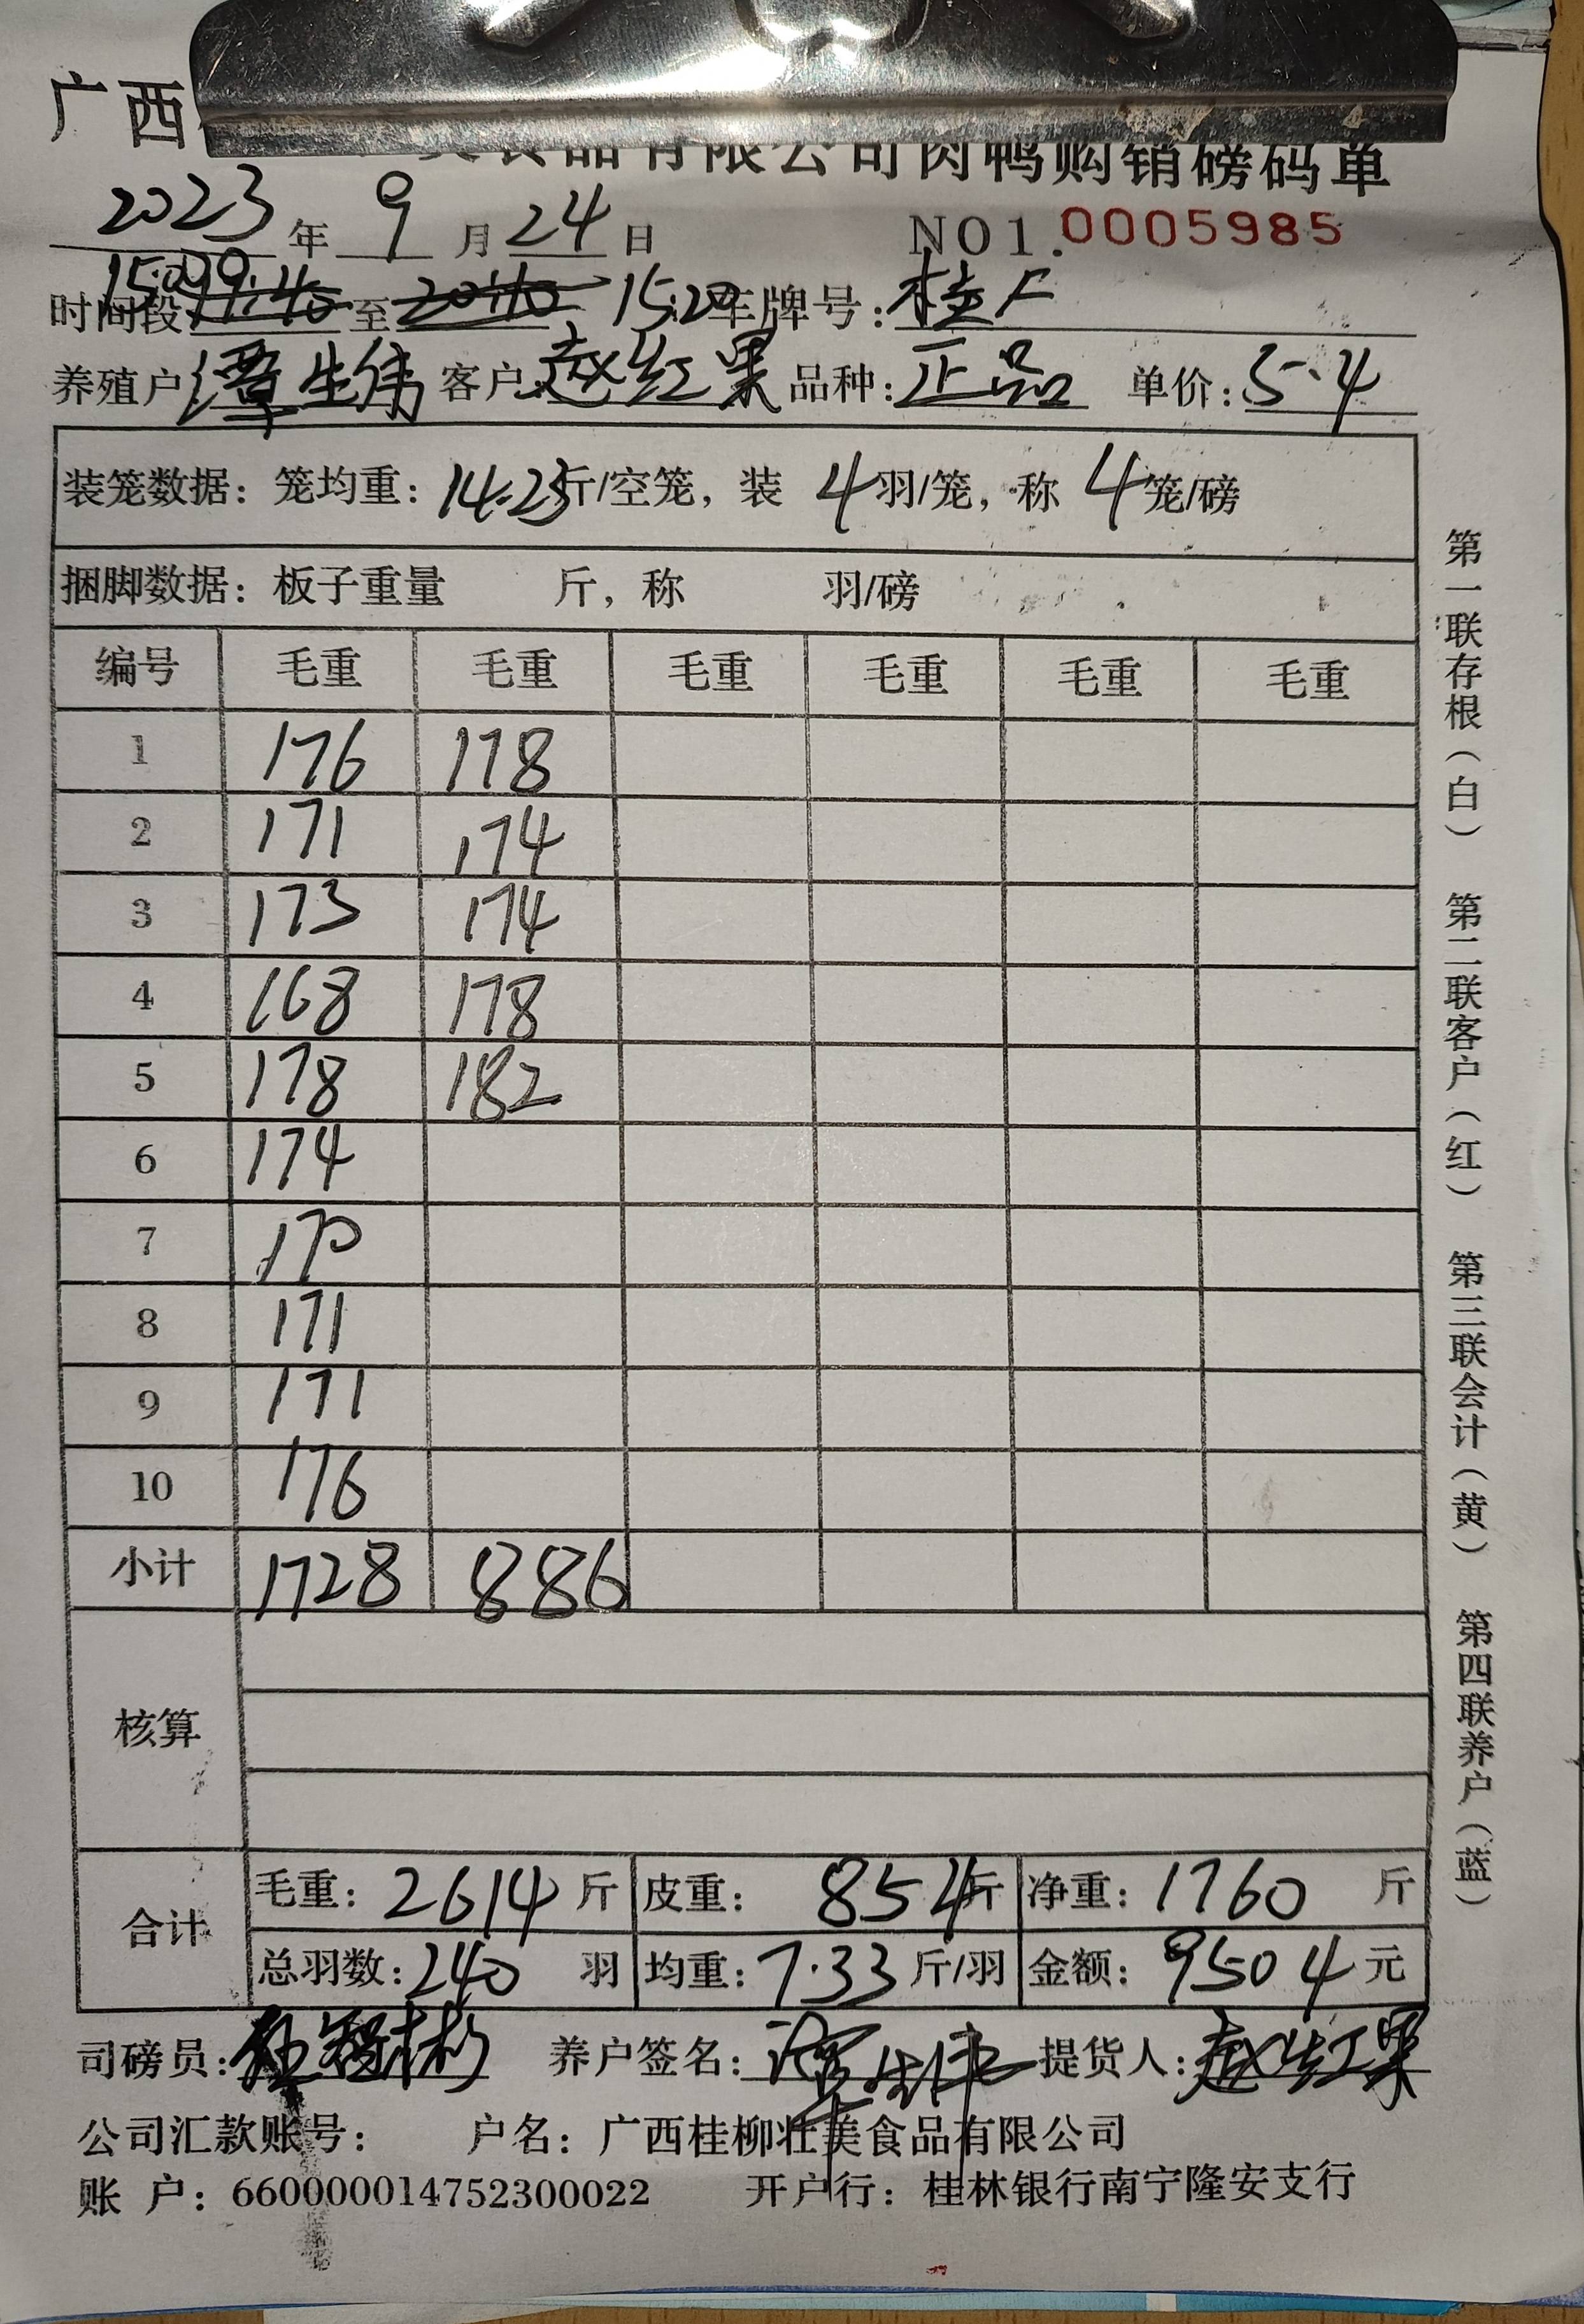 广西 美食品有限公司肉鸭购销磅码单
2023年 9月24日 NO1.0005985
时间段 15:00 19:40 至 20:10 15:20 车牌号: 桂F
养殖户 谭生伟 客户 赵红果 品种: 正品 单价: 5.4
装笼数据: 笼均重: 14.25斤/空笼, 装 4羽/笼, 称 4笼/磅
捆脚数据: 板子重量 斤, 称 羽/磅
编号 毛重 毛重 毛重 毛重 毛重 毛重
1 176 178
2 171 174
3 173 174
4 168 178
5 178 182
6 174
7 170
8 171
9 171
10 176
小计 1728 886
核算
合计 毛重: 2614斤 皮重: 854斤 净重: 1760斤
总羽数: 240羽 均重: 7.33斤/羽 金额: 9504元
司磅员: 养户签名: 谭生伟 提货人: 赵红果
公司汇款账号: 户名: 广西桂柳壮美食品有限公司
账 户: 660000014752300022 开户行: 桂林银行南宁隆安支行
第一联存根(白) 第二联客户(红) 第三联会计(黄) 第四联养户(蓝)